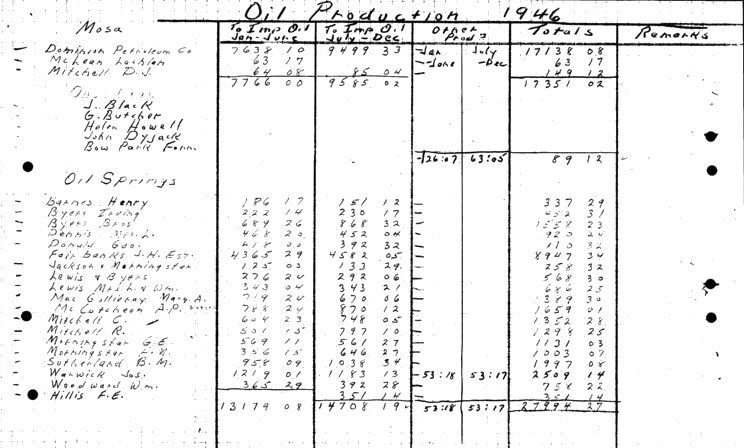 Oil Production 1946
Mosa To Imp Oil Jan-June To Imp. Oil July-Dec. Other Prod's Totals Remarks
Dominion Petroleum Co 7638 10 9499 33 Jan July 17138 08
McLean Lachlan 63 17 -June -Dec 63 17
Mitchell D.J. 64 08 85 04 149 12
7766 00 9585 02 17351 02
J. Black
G. Butcher
Helen Howell
John Dyjack
Bow Park Farm.
26:07 63:05 89 12
Oil Springs
Barnes Henry 186 17 151 12 337 29
Byers Irving 222 14 230 17 452 31
Byers Bros 689 26 868 32 1558 23
Dennis Mrs. L. 468 20 452 04 920 24
Donald Geo. 418 00 392 32 32
Fairbanks J.H. Est. 4365 29 4582 05 8947 34
Jackson & Morningstar 125 03 133 29 258 32
Lewis & Byers 276 24 292 06 568 30
Lewis Mrs L. & Wm. 343 04 343 21 686 25
Mac Gillivray Marg. A. 719 24 670 06 1389 30
Mc Cutcheon A.P. 788 24 870 12 1659 01
Mitchell C. 604 23 748 05 1352 28
Mitchell R. 501 15 797 10 1298 25
Morningstar G.E. 569 11 561 27 1131 03
Morningstar 356 15 646 27 1003 07
Sutherland B.M. 958 09 1038 34 1997 08
Warwick Jos. 1219 01 1183 13 53:18 53:17 2509 14
Woodward Wm. 365 29 392 28 758 22
Hillis F.E. 351 14 351 14
13179 08 14708 19 53:18 53:17 27994 27